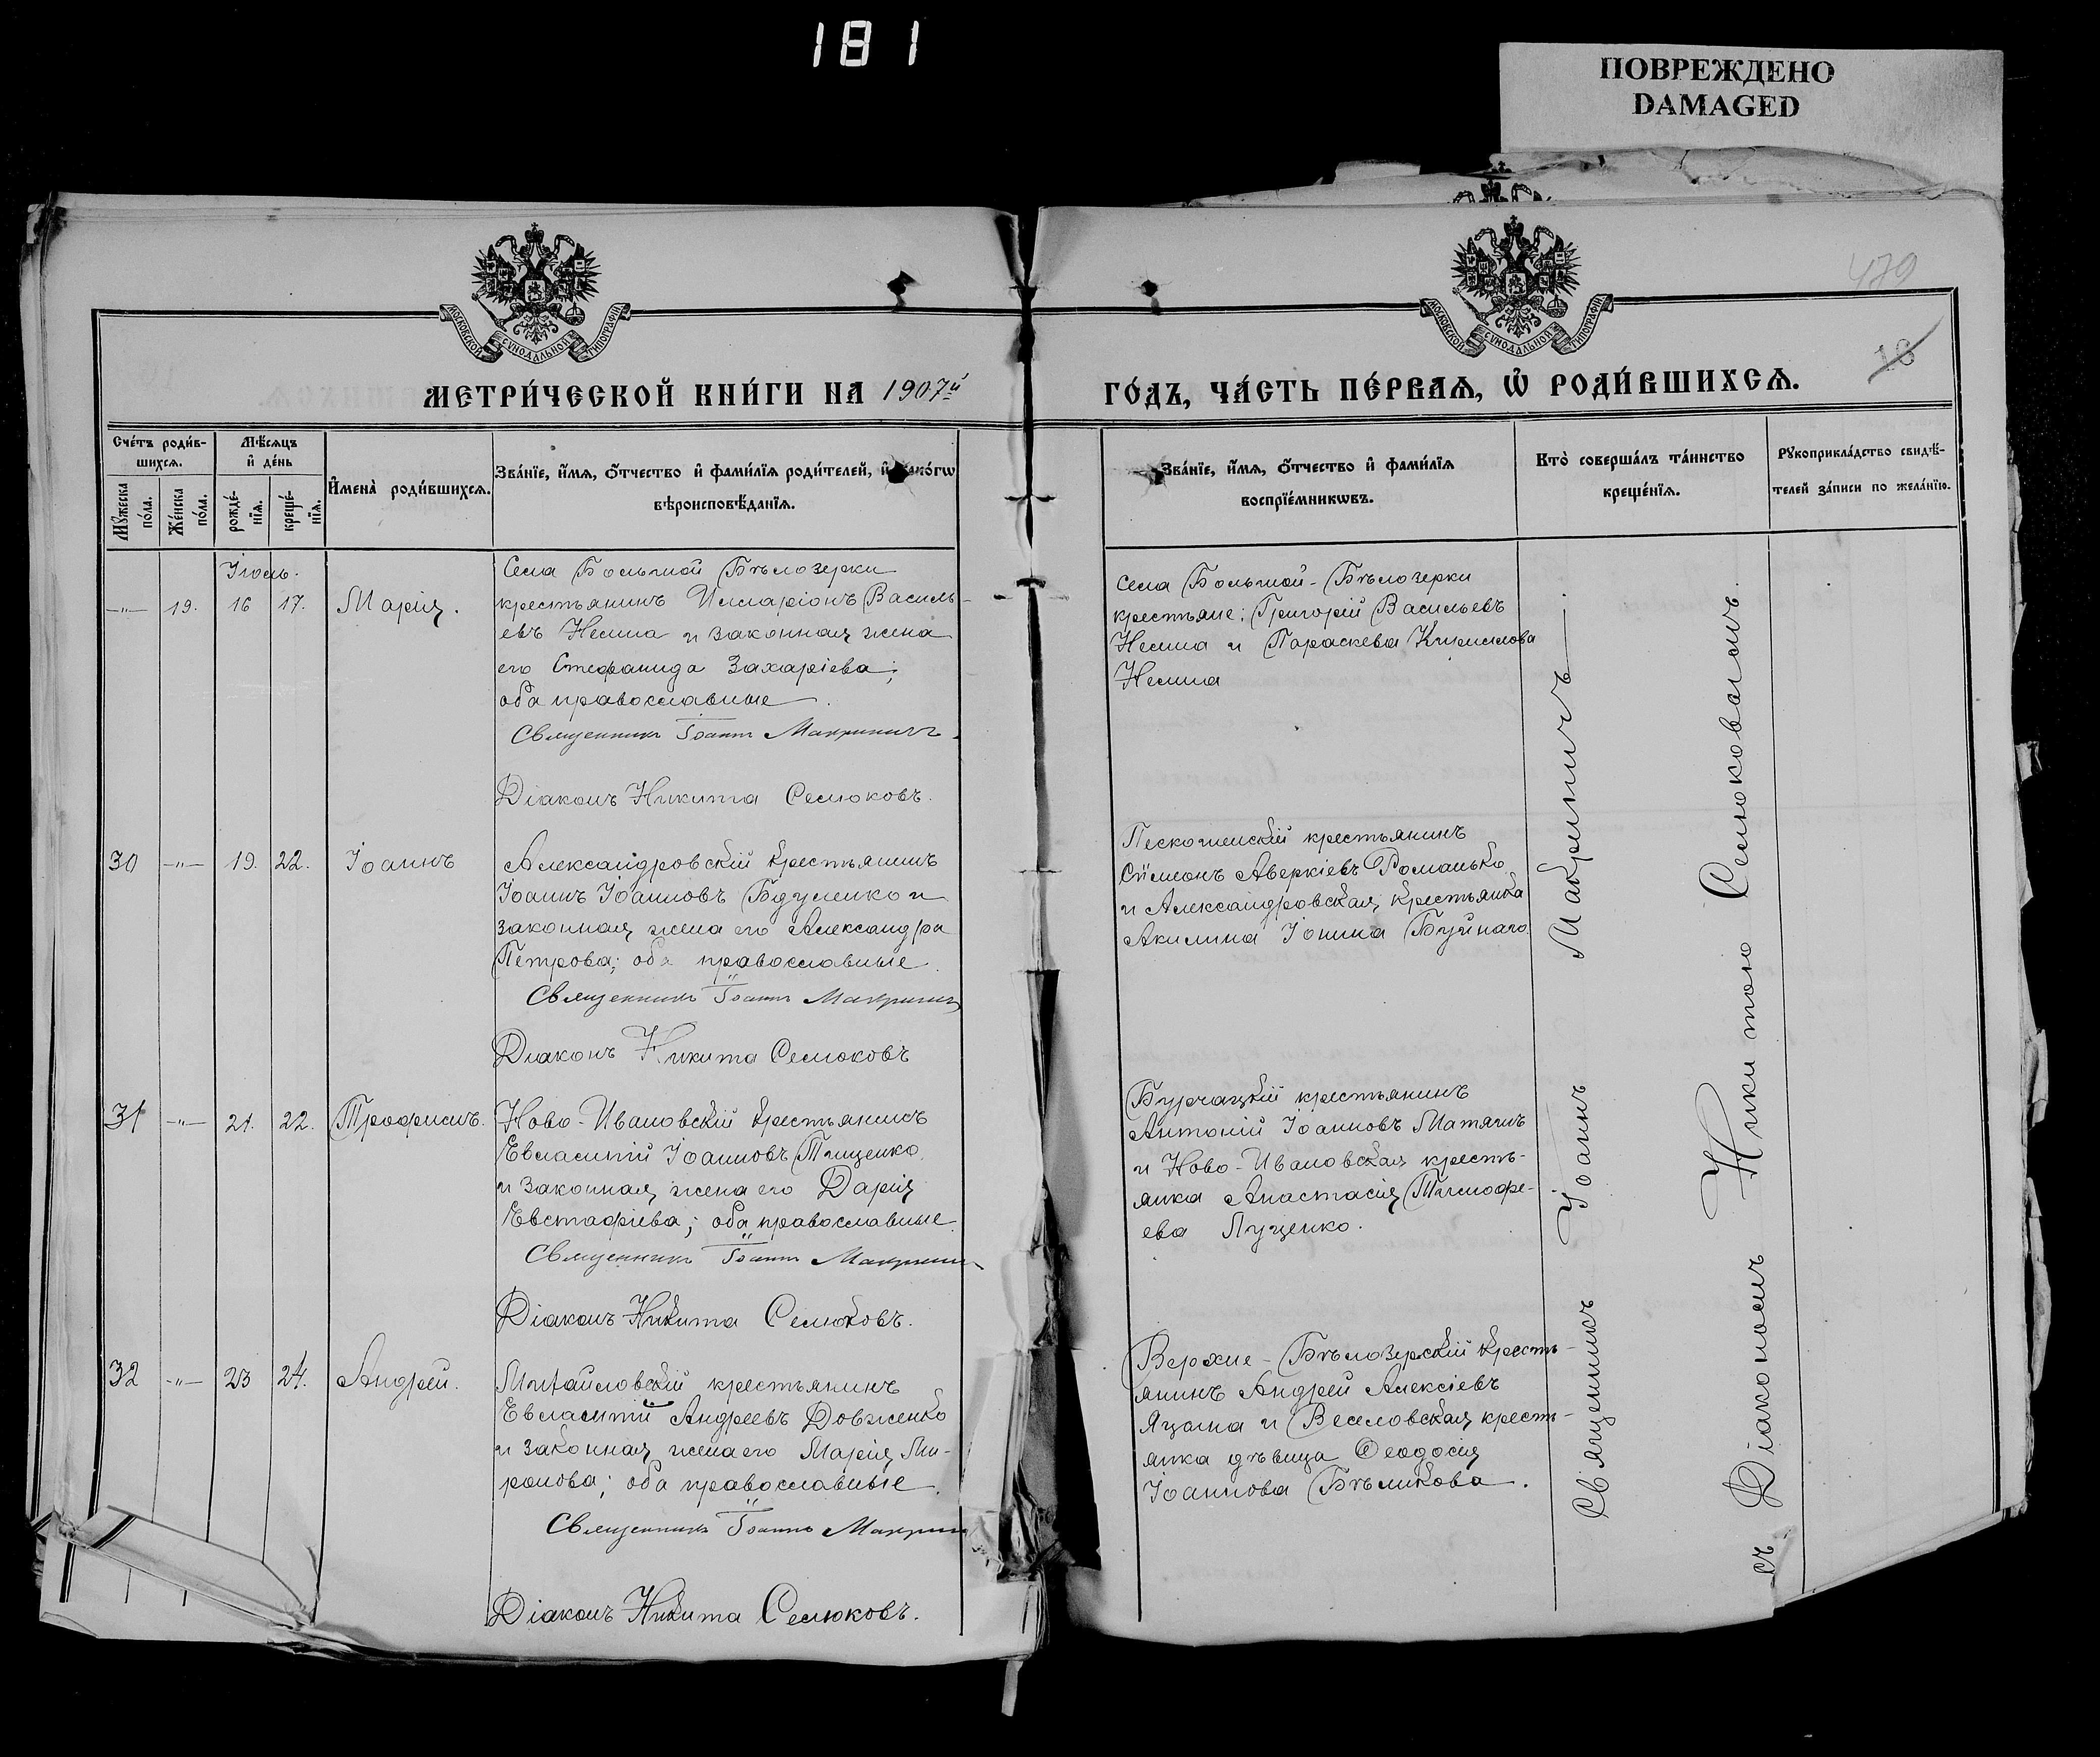 181
ПОВРЕЖДЕНО
DAMAGED
МОСКОВСКОЙ СУНОДАЛЬНОЙ ТИПОГРАФІИ
МОСКОВСКОЙ СУНОДАЛЬНОЙ ТИПОГРАФІИ
479
18
МЕТРИ́ЧЕСКОЙ КНИ́ГИ НА 1907й
ГО́ДЪ, ЧА́СТЬ ПЕ́РВАѦ, Ѡ҆ РОДИ́ВШИХСѦ.
Сче́тъ роди́в-
шихсѧ.
Мꙋ́жеска по́ла.
Же́нска по́ла.
Мѣ́сѧцъ
и҆ де́нь
рожде́-
нїѧ.
креще́-
нїѧ.
И҆мена̀ роди́вшихсѧ.
Зва́нїе, и҆́мѧ, ѻ҆́тчество и҆ фами́лїѧ роди́телей, и҆ како́гѡ
вѣроисповѣ́данїѧ.
Зва́нїе, и҆́мѧ, ѻ҆́тчество и҆ фами́лїѧ
воспрїе́мникѡвъ.
Кто̀ соверша́лъ та́инство
креще́нїѧ.
Рꙋкоприкла́дство свидѣ́-
телей за́писи по жела́нїю.
Іюль.
—"— 19. 16 17. Марія.
Села Большой Бѣлозерки
крестьянинъ Илларіонъ Василь-
евъ Нешта и законная жена
его Стефанида Захаріева;
оба православные.
Священникъ Іоаннъ Макриничъ.
Діаконъ Никита Семюковъ.
Села Большой-Бѣлозерки
крестьяне: Григорій Васильевъ
Нешта и Параскева Кириллова
Нешта
30 —"— 19. 22. Іоаннъ
Александровскій крестьянинъ
Іоаннъ Іоанновъ Бдуленко и
законная жена его Александра
Петрова; оба православные.
Священникъ Іоаннъ Макринич
Діаконъ Никита Семюковъ
Пескошинскій крестьянинъ
Сѵмеонъ Аверкіевъ Романько
и Александровская крестьянка
Акилина Іонина Буйнаго
31 —"— 21. 22. Трофимъ.
Ново-Ивановскій крестьянинъ
Евлампій Іоанновъ Тищенко
и законная жена его Дарія
Евстафіева; оба православные.
Священникъ Іоаннъ Макринич
Діаконъ Никита Семюковъ.
Бурчацкій крестьянинъ
Антоній Іоанновъ Матяшъ
и Ново-Ивановская кресть-
янка Анастасія Тимофе-
ева Луценко.
32 —"— 23 24. Андрей.
Михайловскій крестьянинъ
Евлампій Андреевъ Довженко
и законная жена его Марія Ми-
ронова; оба православные.
Священникъ Іоаннъ Макрин
Діаконъ Никита Семюковъ.
Верхне-Бѣлозерскій кресть-
янинъ Андрей Алексіевъ
Яцына и Веселовская кресть-
янка дѣвица Феодосія
Іоаннова Бѣликова.
Священникъ Іоаннъ Макриничъ —.
съ Діакономъ Никитою Семюковымъ.